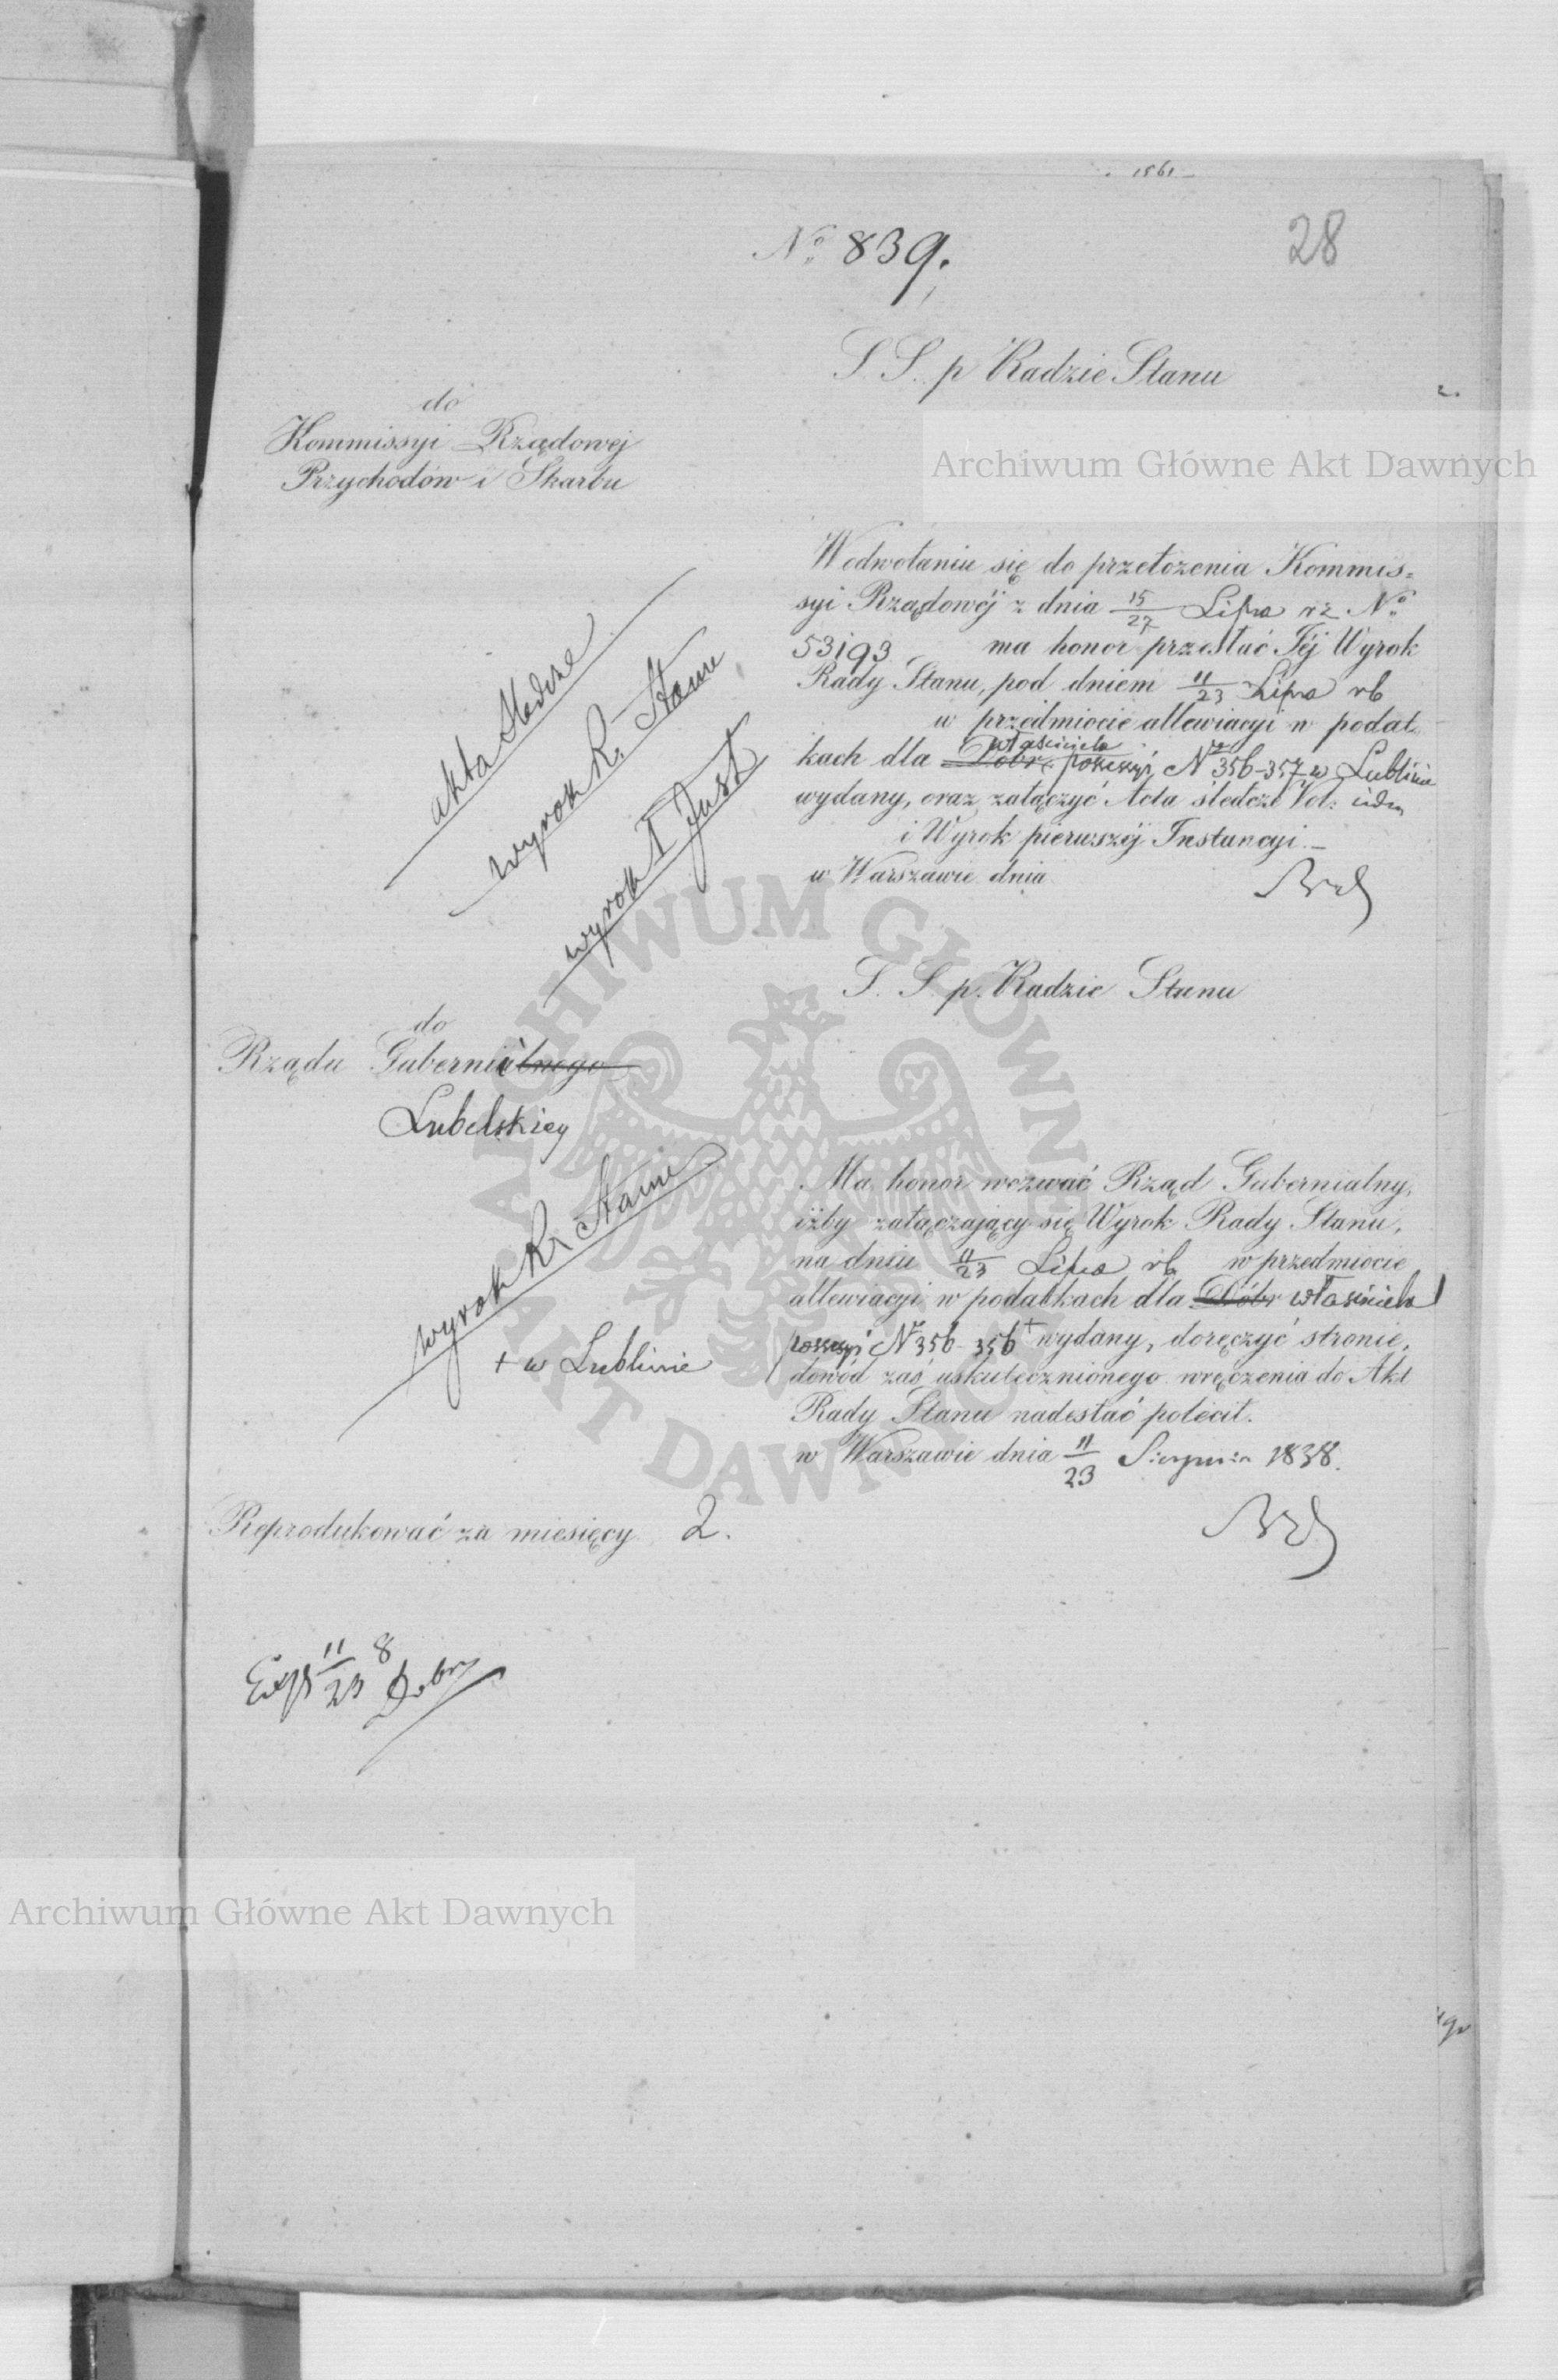 1561
28
No 839.
S. S. p Radzie Stanu
do
Kommissyi Rządowej
Przychodów i Skarbu
W odwołaniu się do przełożenia Kommis=
syi Rządowéj z dnia 15/27 Lipca rz No
53193 ma honor przesłać Jéj Wyrok
Rady Stanu, pod dniem 11/23 Lipca rb
w przedmiocie allewiacyi w podat=
kach dla Dóbr właściciela possessyi No 356-357 w Lublinie
wydany, oraz załączyć Acta śledcze Vol:
i Wyrok pierwszéj Instancyi.–
w Warszawie dnia
akta śledcze
wyrok R. Stanu
wyrok I Inst
S. S. p. Radzie Stanu
do
Rządu Gubernialnego
Lubelskiey
Ma honor wezwać Rząd Gubernialny,
iżby załączający się Wyrok Rady Stanu,
na dniu 11/23 Lipca rb w przedmiocie
allewiacyi w podatkach dla Dóbr właściciela
possessyi No 356-356 + wydany, doręczyć stronie,
dowód zaś uskutecznionego wręczenia do Akt
Rady Stanu nadesłać polecił.
w Warszawie dnia 11/23 Sierpnia 1838.
wyrok R. Stanu
+ w Lublinie
Reprodukować za miesięcy 2.
Exp 11/23 8
Archiwum Główne Akt Dawnych
Archiwum Główne Akt Dawnych
ARCHIWUM GŁÓWNE
AKT DAWNYCH